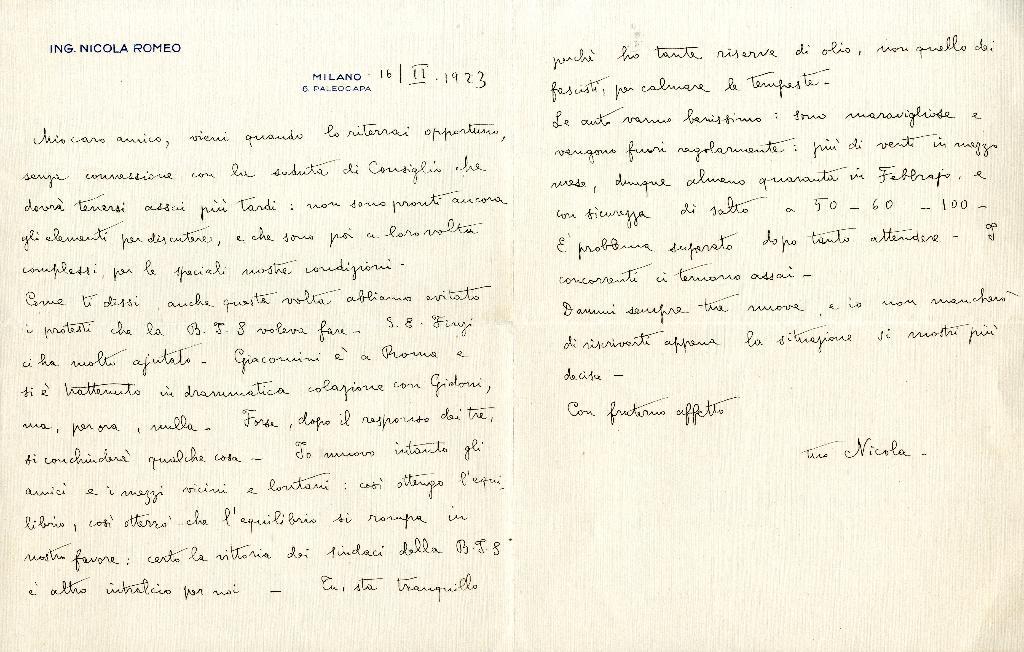 ING. NICOLA ROMEO
MILANO 16 | II . 1923
6. PALEOCAPA
Mio caro amico, vieni quando lo riterrai opportuno,
senza connessione con la seduta di Consiglio che
dovrà tenersi assai più tardi : non sono pronti ancora
gli elementi per discutere, e che sono poi a loro volta
complessi, per le speciali nostre condizioni -
Come ti dissi, anche questa volta abbiamo evitato
i protesti che la B. I. S voleva fare - S. E. Finzi
ci ha molto ajutato - Giacomini è a Roma e
si è trattenuto in drammatica colazione con Gidoni,
ma, per ora, nulla - Forse, dopo il responso dei tre,
si conchiuderà qualche cosa - Io muovo intanto gli
amici e i mezzi vicini e lontani : così ottengo l'equi
librio, così otterrò che l'equilibrio si rompa in
nostro favore : certo la vittoria dei sindaci della B. I. S
è altro intralcio per noi - Tu, sta tranquillo
perchè ho tante riserve di olio, non quello dei
fascisti, per calmare le tempeste -
Le auto vanno benissimo : sono maravigliose e
vengono fuori regolarmente : più di venti in mezzo
mese, dunque almeno quaranta in Febbrajo, e
con sicurezza di salto a 50 - 60 - 100 -
È problema superato dopo tanto attendere - I
concorrenti ci temono assai -
Dammi sempre tue nuove, e io non mancherò
di riscriverti appena la situazione si mostri più
decisa -
Con fraterno affetto
tuo Nicola -